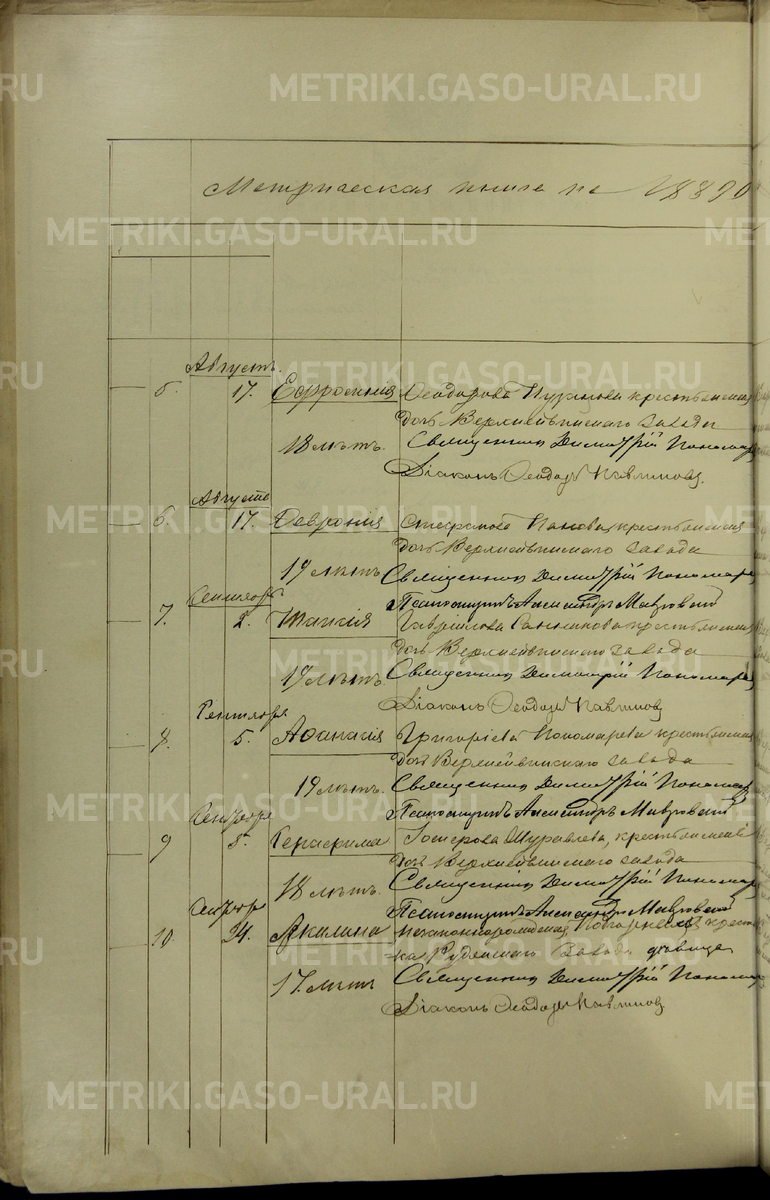 METRIKI.GASO-URAL.RU
Метрическая книга на 1889
METRIKI.GASO-URAL.RU
Августъ
5. 17. Ефросинія Ѳеодорова крестьянская
дочь Верхнейвинскаго завода
18 лѣтъ. Священникъ Димитрій Пономар
Діаконъ Ѳеодоръ Павлиновъ.
Августъ
6. 17. Ѳевронія Стефанова Панова, крестьянская
дочь Верхнейвинскаго завода
19 лѣтъ Священникъ Димитрій Пономаре
Псаломщикъ Александръ Мавровскій
Сентября
7. 2. Таисія Гавриилова крестьянская
дочь Верхнейвинскаго завода
19 лѣтъ. Священникъ Димитрій Пономаре
Діаконъ Ѳеодоръ Павлиновъ
Сентября
8. 5. Аѳанасія Григоріева Пономарева крестьянская
дочь Верхнейвинскаго завода
19 лѣтъ. Священникъ Димитрій Пономар
Псаломщикъ Александръ Мавровскій
Сентября
9 5. Журавлева, крестьянская
дочь Верхнейвинскаго завода
18 лѣтъ. Священникъ Димитрій Пономар
Псаломщикъ Александръ Мавровскій
Сентября
10. 24. Акилина крест
ка завода дѣвица
17. лѣтъ Священникъ Димитрій Пономар
Діаконъ Ѳеодоръ Павлиновъ
METRIKI.GASO-URAL.RU